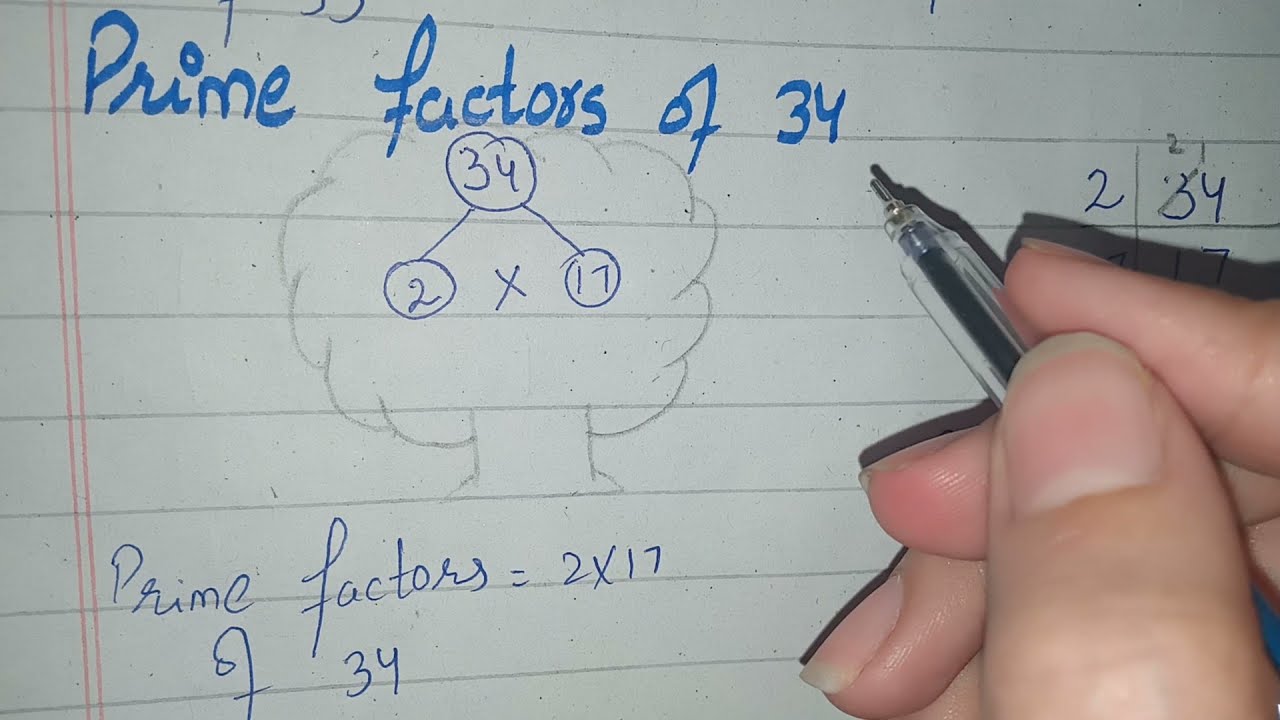 Prime factors of 34
34
2 X 17
2 34
17
Prime factors = 2X17
of 34